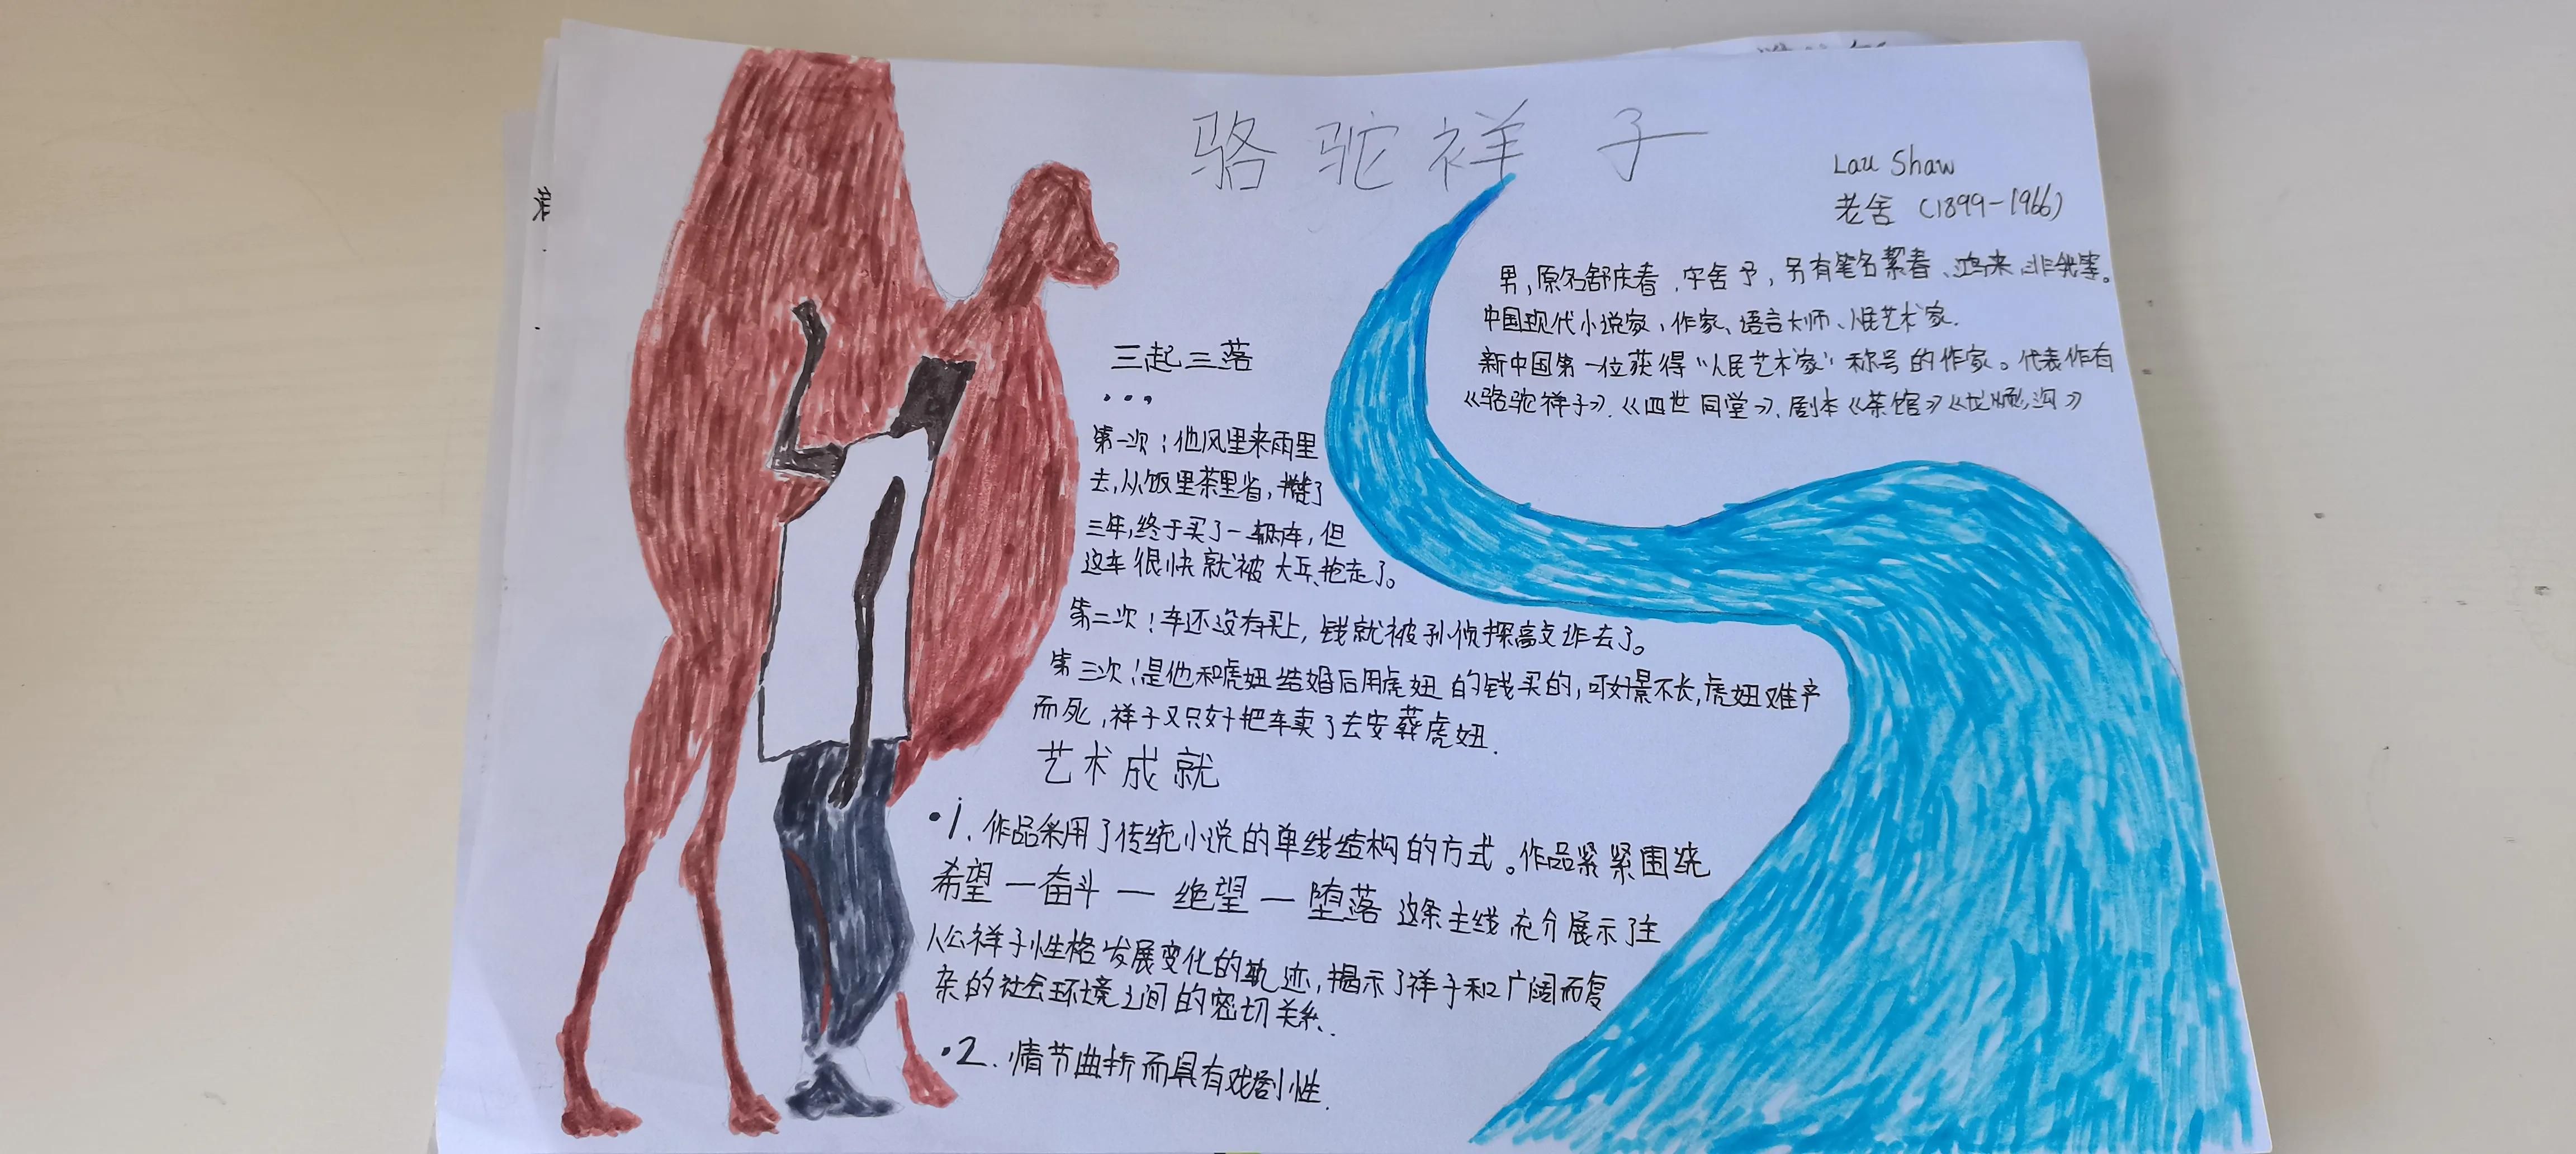 骆驼祥子
Lau Shaw
老舍 (1899-1966)
男,原名舒庆春,字舍予,另有笔名絜春、鸿来、非我等。
中国现代小说家,作家、语言大师、人民艺术家.
新中国第一位获得“人民艺术家”称号的作家。代表作有
《骆驼祥子》.《四世同堂》、剧本《茶馆》《龙须沟》
三起三落
...
第一次:他风里来雨里
去,从饭里茶里省,攒了
三年,终于买了一辆车,但
这车很快就被大兵抢走了。
第二次:车还没有买上,钱就被孙侦探敲诈去了。
第三次:是他和虎妞结婚后用虎妞的钱买的,可好景不长,虎妞难产
而死,祥子又只好把车卖了去安葬虎妞.
艺术成就
·1.作品采用了传统小说的单线结构的方式。作品紧紧围绕
希望一奋斗一绝望一堕落这条主线充分展示了主
人公祥子性格发展变化的轨迹,揭示了祥子和广阔而复
杂的社会环境之间的密切关系.
·2.情节曲折而具有戏剧性.